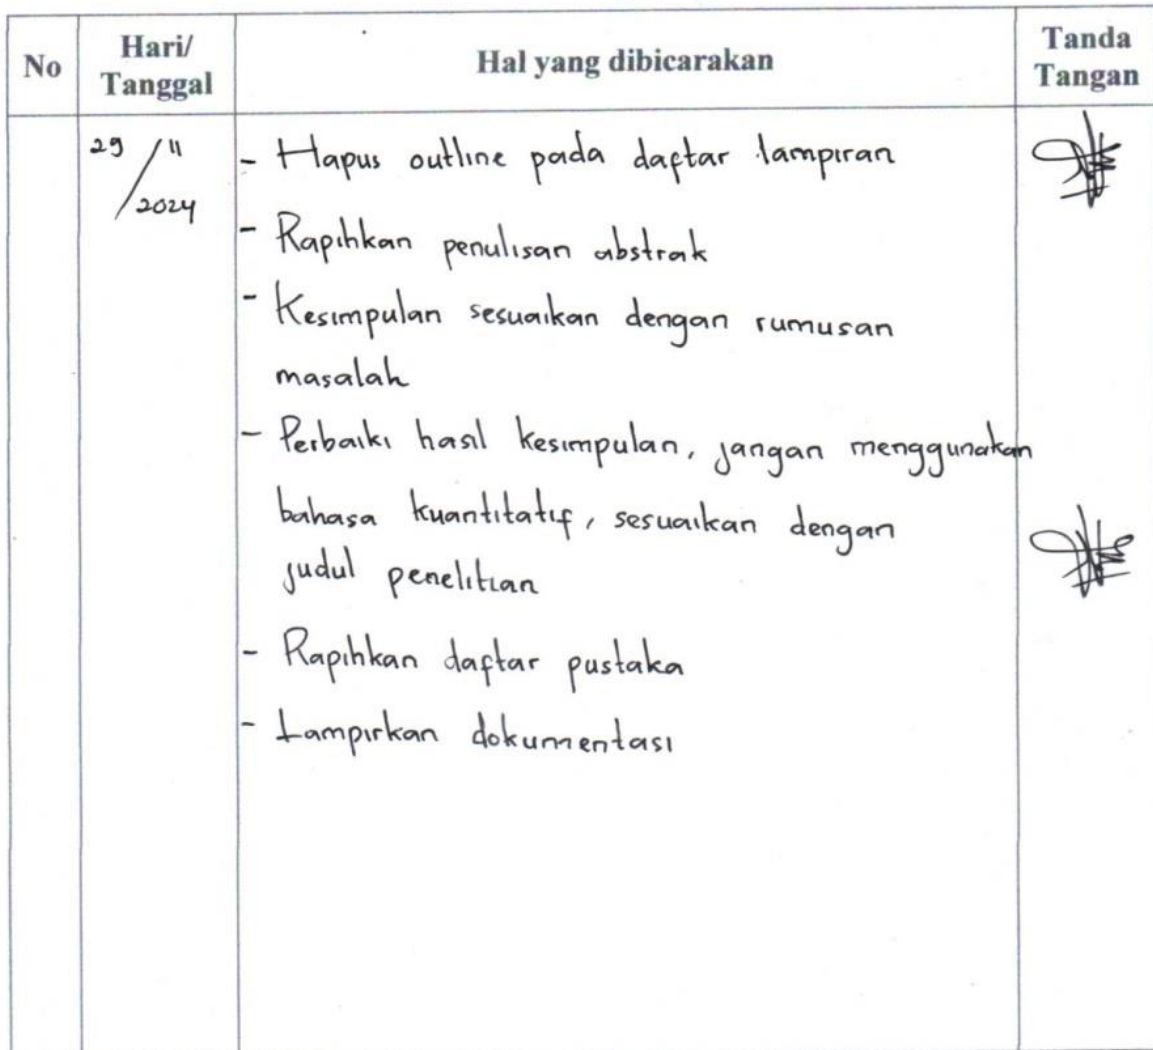 No
Hari/
Tanggal
Hal yang dibicarakan
Tanda
Tangan
29 / 11
/ 2024
- Hapus outline pada daftar lampiran
- Rapihkan penulisan abstrak
- Kesimpulan sesuaikan dengan rumusan
masalah
- Perbaiki hasil kesimpulan, jangan menggunakan
bahasa kuantitatif, sesuaikan dengan
judul penelitian
- Rapihkan daftar pustaka
- Lampirkan dokumentasi